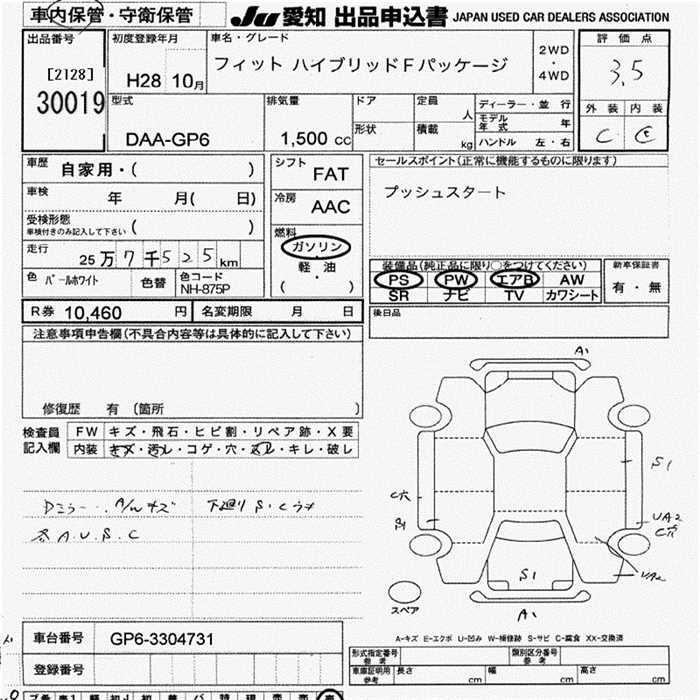 車内保管・守衛保管
JU 愛知 出品申込書 JAPAN USED CAR DEALERS ASSOCIATION
出品番号
[2128]
30019
初度登録年月
H28 10月
車名・グレード
フィット ハイブリッドFパッケージ
2WD
・
4WD
評価点
3.5
外装 内装
C C
型式
DAA-GP6
排気量
1,500 cc
ドア
形状
定員 人
積載 kg
ディーラー・並行
モデル年式 年
ハンドル 左・右
車歴 自家用・( )
車検 年 月( 日)
受検形態
車検付きのみ記入して下さい ( )
走行 25万7千525km
色 パールホワイト 色替 色コード NH-875P
シフト FAT
冷房 AAC
燃料
ガソリン
軽・油
( )
セールスポイント(正常に機能するものに限ります)
プッシュスタート
装備品(純正品に限り○をつけてください)
PS PW エアB AW
SR ナビ TV カワシート
新車保証書
有・無
後日品
R券 10,460 円 名変期限 月 日
注意事項申告欄(不具合内容等は具体的に記入して下さい)
修復歴 有 (箇所 )
検査員記入欄
FW キズ・飛石・ヒビ割・リペア跡・X要
内装 キズ・汚レ・コゲ・穴・スレ・キレ・破レ
Dミラー A/W キズ 下廻り S.C
A.U.S.C
A1
S1
C穴
S1
UA2
S1
UA2
A1
スペア
A-キズ E-エクボ U-凹み W-補修跡 S-サビ C-腐食 XX-交換済
車台番号 GP6-3304731
登録番号
形式指定番号
参考
類別区分番号
参考
車庫証明用
参考
長さ cm 幅 cm 高さ cm